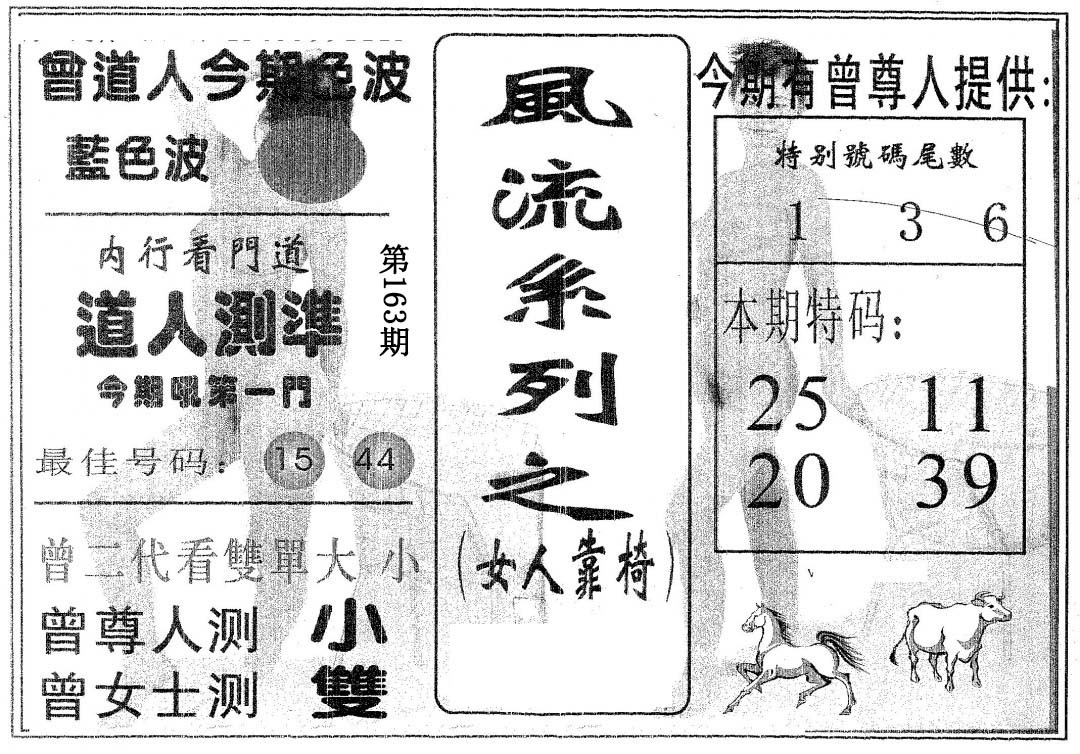 曾道人今期色波
藍色波
内行看門道
道人測準
今期吼第一門
最佳号码：15 44
曾二代看雙單大小
曾尊人测 小
曾女士测 雙
第163期
風流系列之
（女人靠椅）
今期有曾尊人提供:
特别號碼尾數
1 3 6
本期特码:
25 11
20 39